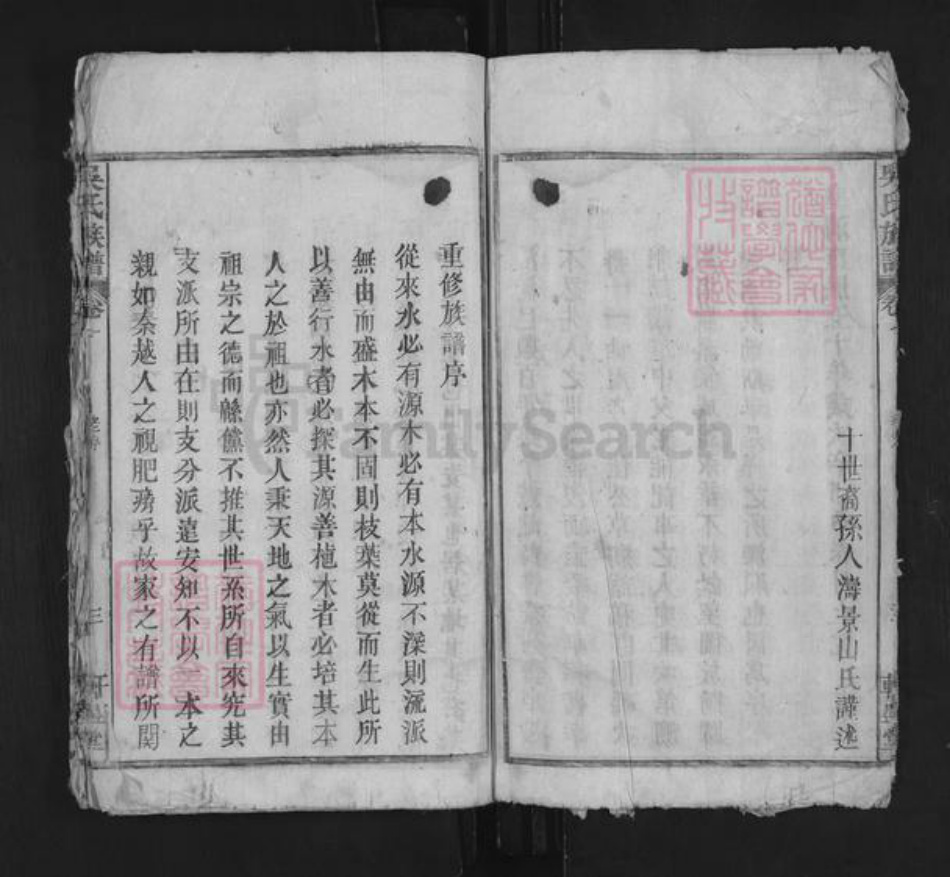 吳氏族譜 卷
十世裔孫人濤景山氏謹述
重修族譜序
從來水必有源木必有本水源不深則流派
無由而盛木本不固則枝葉莫從而生此所
以善行水者必探其源善植木者必培其本
人之於祖也亦然人秉天地之氣以生實由
祖宗之德而緜儻不推其世系所自來究其
支派所由在則支分派遠安知不以一本之
親如秦越人之視肥瘠乎故家之有譜所関
吳氏族譜 卷
三
FamilySearch